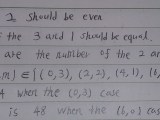 2 should be even
the 3 and 1 should be equal.
are the number of the 2 an
m) ∈ {(0,3), (2,2), (4,1), (6,
4 when the (0,3) case
is 48 when the (6,0) cas